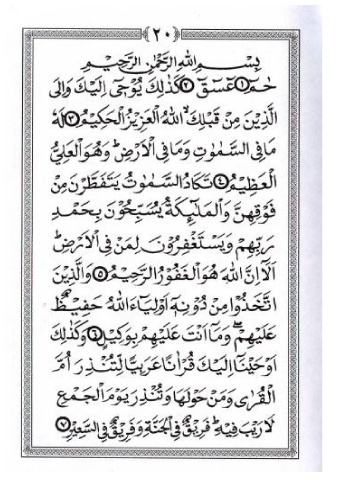 ٢٠
بِسْمِ اللهِ الرَّحْمٰنِ الرَّحِيْمِ
حٰمۤ ﴿١﴾ عۤسۤقۤ ﴿٢﴾ كَذٰلِكَ يُوْحٰىٓ اِلَيْكَ وَاِلَى
الَّذِيْنَ مِنْ قَبْلِكَ ۙ اللهُ الْعَزِيْزُ الْحَكِيْمُ ﴿٣﴾ لَهٗ
مَا فِى السَّمٰوٰتِ وَمَا فِى الْاَرْضِ ؕ وَهُوَ الْعَلِىُّ
الْعَظِيْمُ ﴿٤﴾ تَكَادُ السَّمٰوٰتُ يَتَفَطَّرْنَ مِنْ
فَوْقِهِنَّ وَالْمَلٰٓئِكَةُ يُسَبِّحُوْنَ بِحَمْدِ
رَبِّهِمْ وَيَسْتَغْفِرُوْنَ لِمَنْ فِى الْاَرْضِ ؕ
اَلَاۤ اِنَّ اللهَ هُوَ الْغَفُوْرُ الرَّحِيْمُ ﴿٥﴾ وَالَّذِيْنَ
اتَّخَذُوْا مِنْ دُوْنِهٖۤ اَوْلِيَآءَ اللهُ حَفِيْظٌ
عَلَيْهِمْ ۖ وَمَاۤ اَنْتَ عَلَيْهِمْ بِوَكِيْلٍ ﴿٦﴾ وَكَذٰلِكَ
اَوْحَيْنَاۤ اِلَيْكَ قُرْاٰنًا عَرَبِيًّا لِّتُنْذِرَ اُمَّ
الْقُرٰى وَمَنْ حَوْلَهَا وَتُنْذِرَ يَوْمَ الْجَمْعِ
لَا رَيْبَ فِيْهِ ؕ فَرِيْقٌ فِى الْجَنَّةِ وَفَرِيْقٌ فِى السَّعِيْرِ ﴿٧﴾